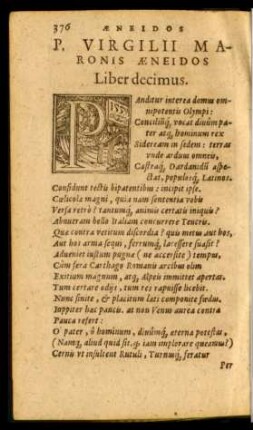 376 AENEIDOS
P. VIRGILII MA-
RONIS AENEIDOS
Liber decimus.
PAnditur interea domus om-
nipotentis Olympi:
Conciliūq́, vocat divûm pa-
ter atq́, hominum rex
Sideream in sedem: terras
vnde arduus omneis,
Castraq́, Dardanidû aspe-
ctat, populosq́, Latinos.
Considunt tectis bipatentibus: incipit ipse.
Caelicola magni, quia nam sententia vobis
Versa retrò? tantumq́, animis certatis iniquis?
Abnueram bello Italiam concurrere Teucris.
Qua contra vetitum discordia? quis metus aut hos,
Aut hos arma sequi, ferrumq́, lacessere suasit?
Adueniet iustum pugnae (ne accersite) tempus,
Cùm fera Carthago Romanis arcibus olim
Exitium magnum, atq́, Alpeis immittet apertas.
Tum certare odijs, tum res rapuisse licebit.
Nunc sinite, & placitum laeti componite foedus.
Iuppiter haec paucis. at non Venus aurea contra
Pauca refert:
O' pater, ô hominum, diuûmq́, aeterna potestas,
(Namq́, aliud quid sit, q̄ iam implorare queamus?)
Cernis vt insultent Rutuli, Turnusq́, feratur
Per